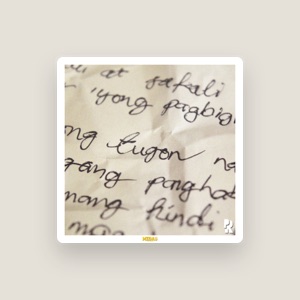 at sakali
'yong pagbig
ng tugon na
gang paghah
nang hindi